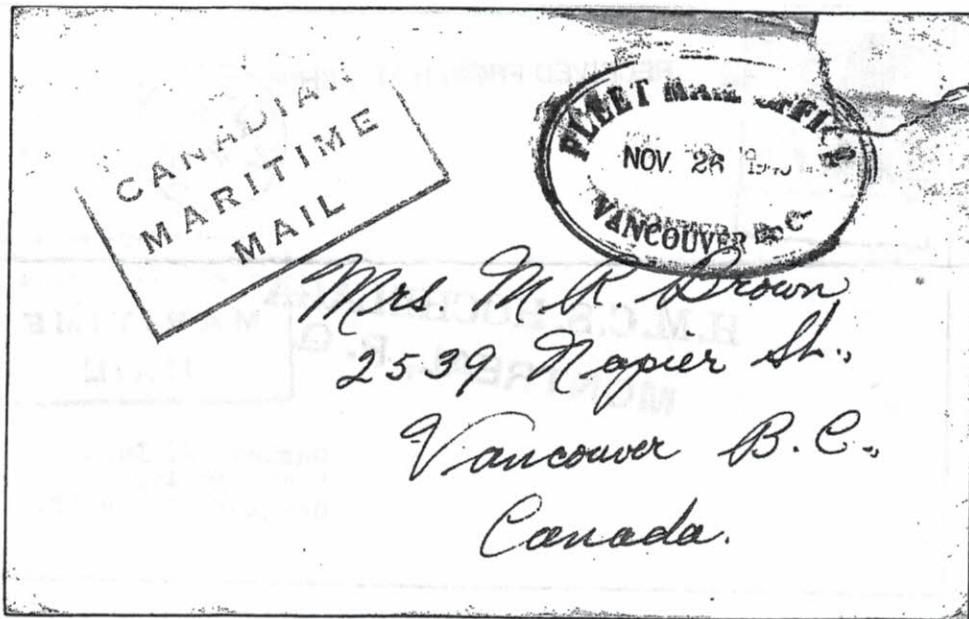 CANADIAN
MARITIME
MAIL
FLEET MAIL OFFICE
NOV. 26
VANCOUVER B.C.
Mrs. M. R. Brown,
2539 Napier St.,
Vancouver B.C.,
Canada.